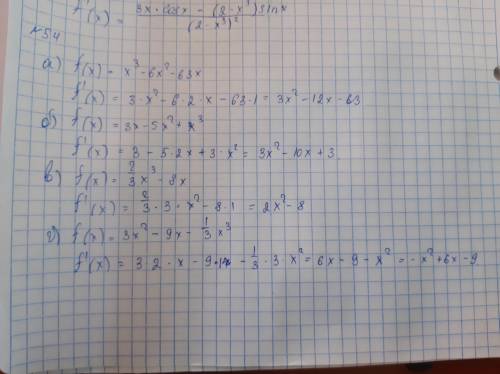 f'(x) = 3x · cosx - (2 - x³) sinx / (2 - x³)²
№54
а) f(x) = x³ - 6x² - 63x
f'(x) = 3 · x² - 6 · 2 · x - 63 · 1 = 3x² - 12x - 63
б) f(x) = 3x - 5x² + x³
f'(x) = 3 - 5 · 2x + 3 · x² = 3x² - 10x + 3.
в) f(x) = 2/3 x³ - 8x
f'(x) = 2/3 · 3 · x² - 8 · 1 = 2x² - 8
г) f(x) = 3x² - 9x - 1/3 x³
f'(x) = 3 · 2 · x - 9 · 1 - 1/3 · 3 · x² = 6x - 9 - x² = - x² + 6x - 9